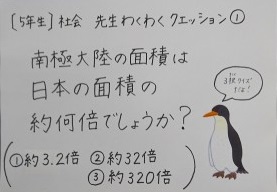 〔5年生〕社会 先生わくわくクエッション①
南極大陸の面積は
日本の面積の
約何倍でしょうか？
3択クイズ
だよ！
①約3.2倍 ②約32倍
③約320倍